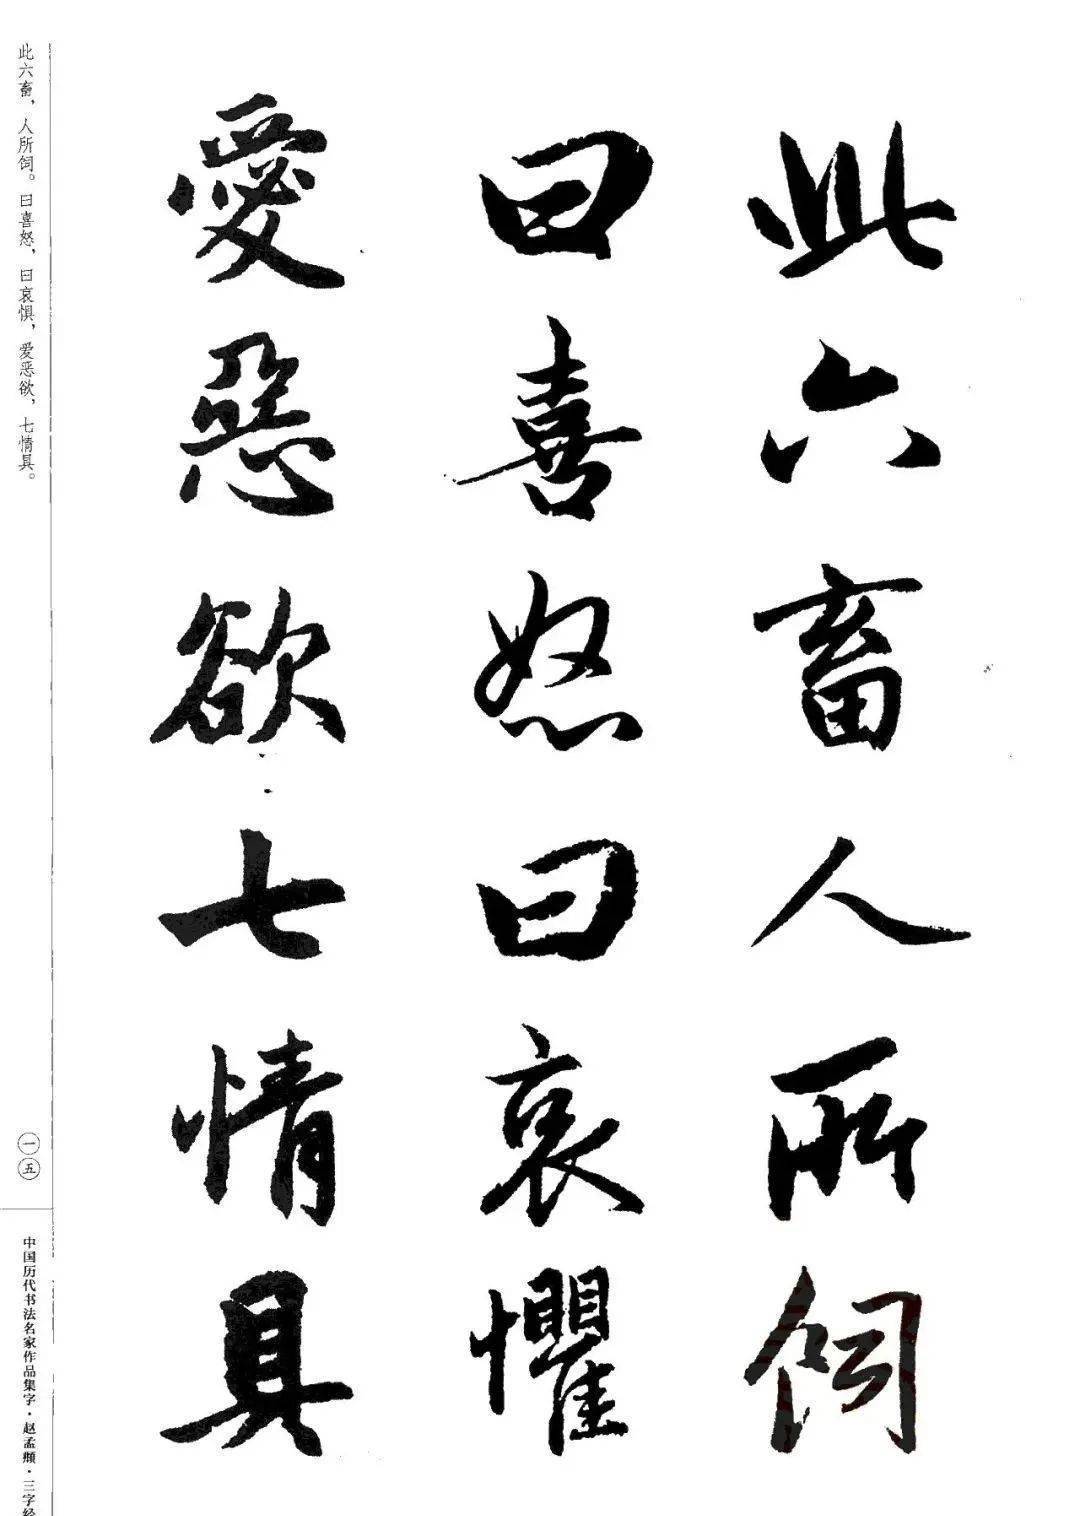 此六畜人所饲
曰喜怒曰哀懼
愛惡欲七情具
此六畜，人所饲。曰喜怒，曰哀惧，爱恶欲，七情具。
一五
中国历代书法名家作品集字·赵孟頫·三字经